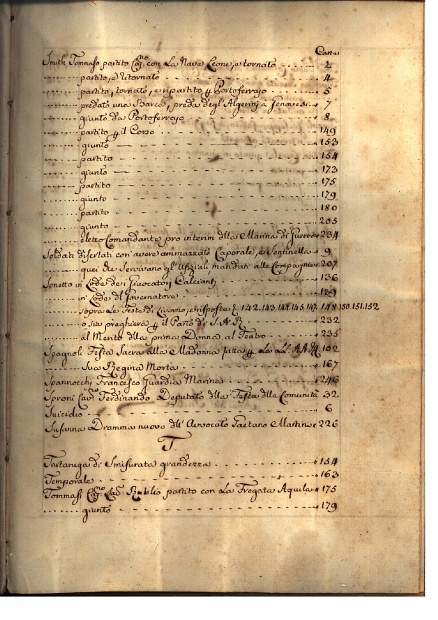 Carte
Smith Tommaso partito con La Nave Leone, e tornato 2
partito, e ritornato 4
partito, tornato, e ripartito p Portoferrajo 5
predato una Barca, preda degl'Algerini a 7
giunto da Portoferrajo 8
partito p il Corso 149
giunto 153
partito 154
giunto 173
partito 175
giunto 179
partito 180
giunto 235
eletto Comandante pro interim dlla Marina di Guerra 234
Soldati disertati con avere ammazzato Caporale, e Sentinella 9
quei che servivano gl'Ufiziali mandati alle Compagnie 207
Sonetto in Lode dei Giuocatori Calcianti 136
in Lode del Governatore 139
sopra le Feste di Livorno, e risposte 142.143.144.145.147.148.150.151.152
o sia preghiera p il Parto di S.A.R. 232
al Merito dlla prima Donna al Teatro 235
Spagnoli Festa Sacra alla Madonna fatta p La LL.AA.RR 102
Sua Regina Morta 167
Spannocchi Francesco Guardia Marina 246
Sproni Cav. Ferdinando Deputato dlla Festa dlla Comunità 32
Suicidio 6
Susanna Dramma nuovo dll'Avvocato Gaetano Martini 226
T
Tartaruga di smisurata grandezza 154
Temporale 163
Tommasi partito con La Fregata Aquila 175
giunto 179